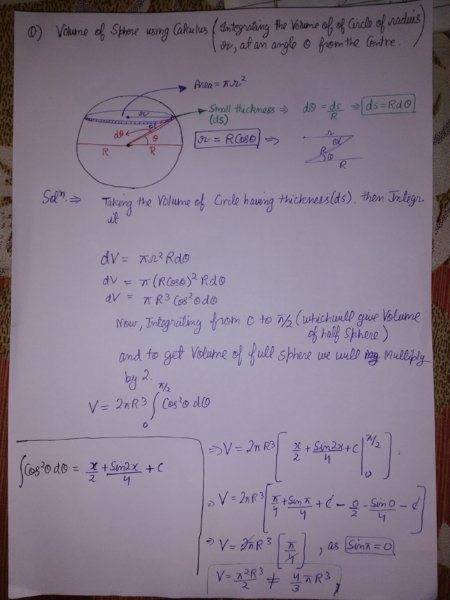 Q) Volume of Sphere using Calculus (Integrating the Volume of of Circle of radius
r, at an angle θ from the Centre.)
Area = πr²
r
Small thickness ⇒ dθ = ds/R ⇒ ds = Rdθ
(ds)
dθ
θ
R
R
r = RCosθ ⇒
r
R
θ
R
Solⁿ ⇒ Taking the Volume of Circle having thickness(ds). then Integr
it
dV = πr² Rdθ
dV = π(RCosθ)² Rdθ
dV = πR³ Cos²θdθ
Now, Integrating from 0 to π/2 (which will give Volume
of half Sphere)
and to get Volume of full Sphere we will Multiply
by 2.
V = 2πR³ ∫₀^π/2 Cos²θ dθ
∫Cos²θ dθ = x/2 + Sin2x/4 + C
⇒ V = 2πR³ [x/2 + Sin2x/4 + C |₀^π/2]
⇒ V = 2πR³ [π/4 + Sinπ/4 + C - 0/2 - Sin0/4 - C]
⇒ V = 2πR³ [π/4], as Sinπ = 0
V = π²R³/2 ≠ 4/3 πR³